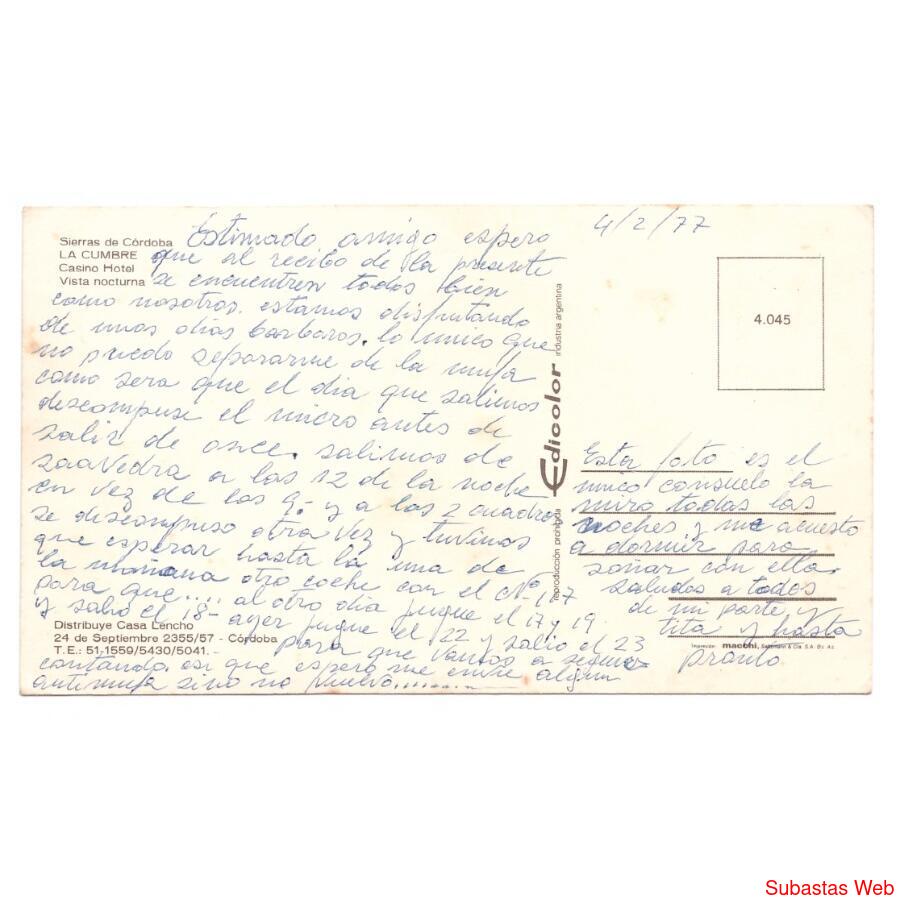 Sierras de Córdoba
LA CUMBRE
Casino Hotel
Vista nocturna
Estimado amigo espero
que al recibo de la presente
se encuentren todos bien
como nosotros. estamos disfrutando
de unos dias barbaros. lo unico que
no puedo separarme de la mufa
como sera que el dia que salimos
descompuse el micro antes de
salir de once. salimos de
saavedra a las 12 de la noche
en vez de las 9.- y a las 2 cuadras
se descompuso otra vez y tuvimos
que esperar hasta la una de
la mañana otro coche con el Nº 17
para que.... al otro dia jugue el 17 y 19
y salio el 18- ayer jugue el 22 y salio el 23
para que vamos a seguir
contando. asi que espero me envie algun
antimufa sino no vuelvo..........
Distribuye Casa Lencho
24 de Septiembre 2355/57 - Córdoba
T.E.: 51-1559/5430/5041. -
Edicolor industria argentina
reproducción prohibida
4/2/77
4.045
Esta foto es el
unico consuelo la
miro todas las
noches y me acuesto
a dormir para
soñar con ella.
saludos a todos
de mi parte y
tita y hasta
pronto
Impresión macchi, S.A. Bs. As.
Subastas Web